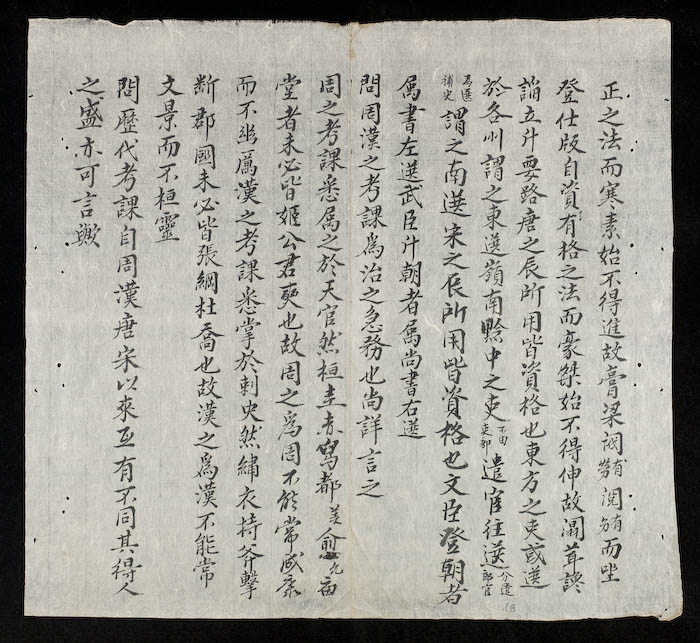 正之法而寒素始不得進故膏梁閥有勞閱有功而坐
登仕版自資有格之法而豪桀始不得伸故濶茸諂
諂立斗要路唐之辰所用皆資格也東方之吏或選
於各州謂之東選嶺南黔中之吏不由吏部遣官往選分遣郎官
為選補史謂之南選宋之辰所用皆資格也文臣登朝者
属書左選武臣斗朝者属尚書右選
問周漢之考課為治之急務也尚詳言之
周之考課悉属之於天官然桓圭赤舄都美愈九命
堂者未必皆姬公君奭也故周之為周不能常成康
而不幽厲漢之考課悉掌於刺史然繡衣持斧擊
断郡國未必皆張綱杜喬也故漢之為漢不能常
文景而不桓靈
問歷代考課自周漢唐宋以來互有不同其得人
之盛亦可言歟